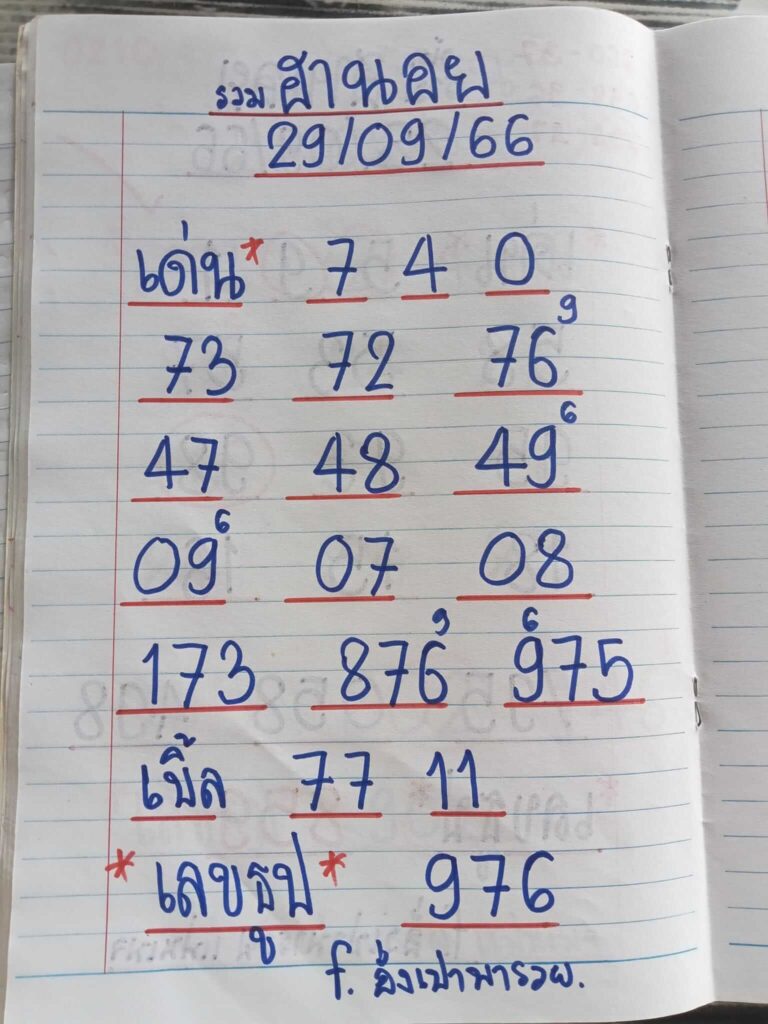 รวม ฮานอย
29/09/66
เด่น* 7 4 0
73 72 76⁹
47 48 49⁶
09⁶ 07 08
173 876⁹ 9⁶75
เบิ้ล 77 11
*เลขธูป* 976
f. อั่งเปาพารวย.